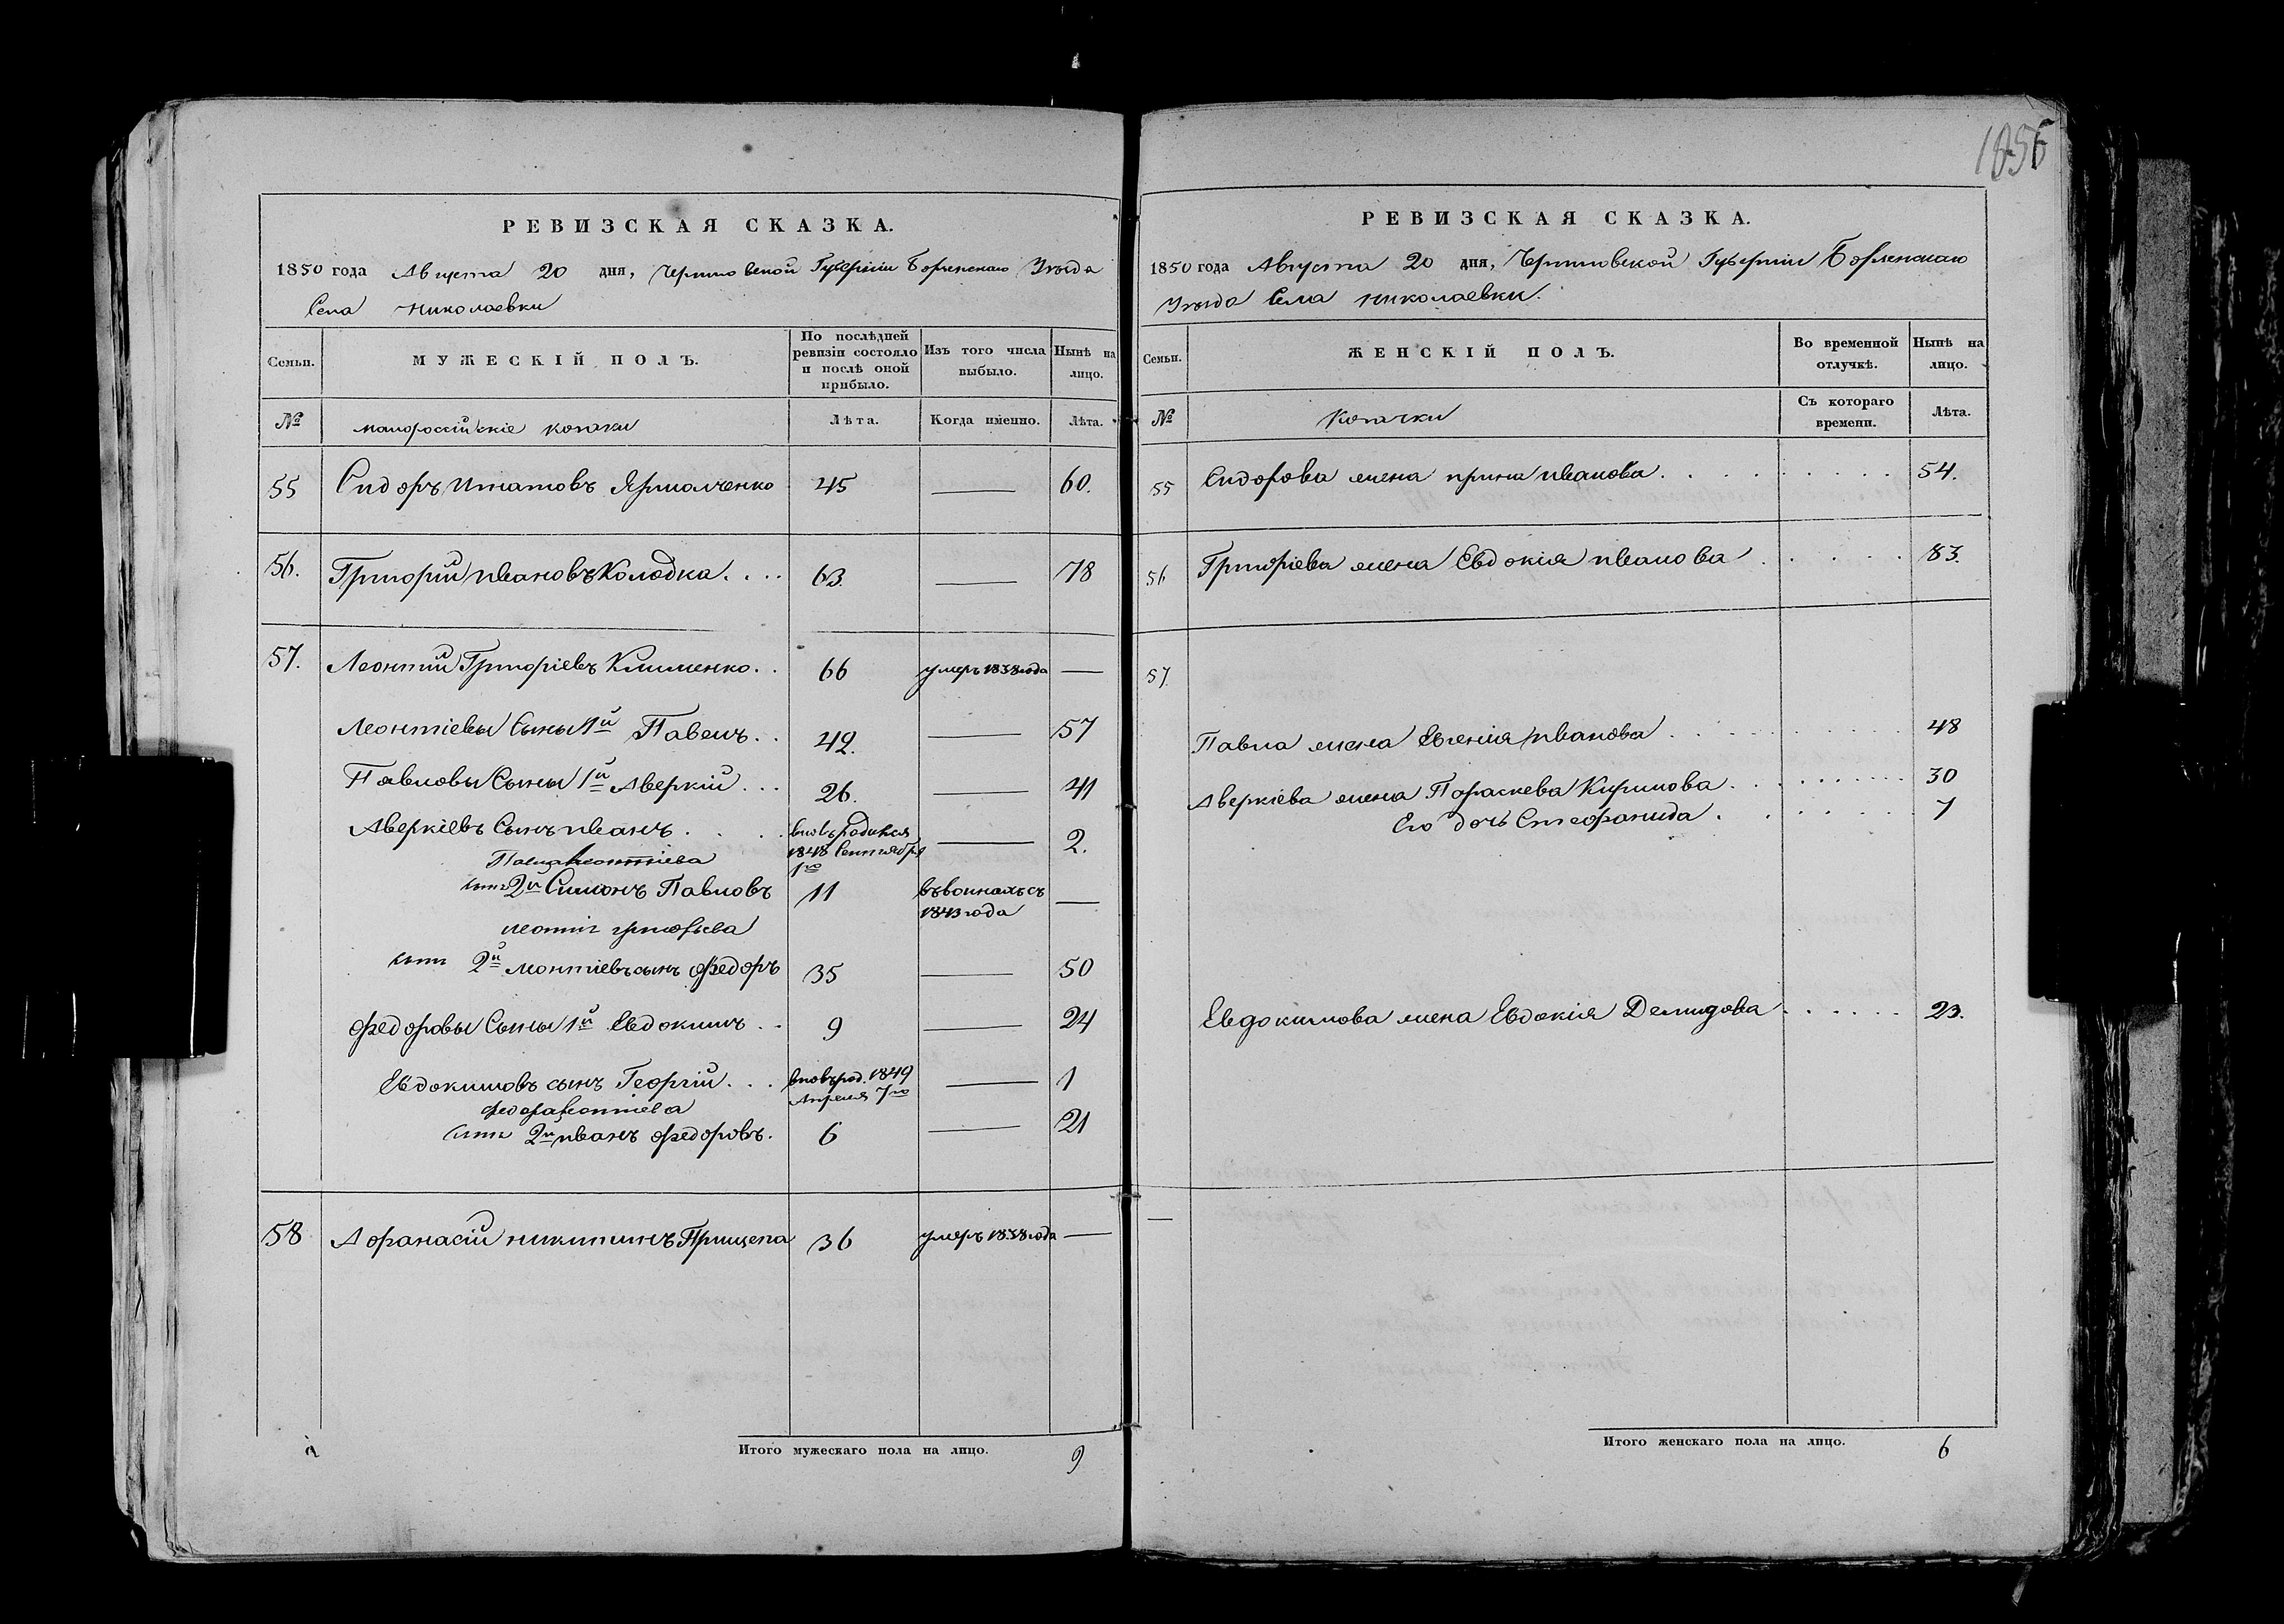 1856
РЕВИЗСКАЯ СКАЗКА.
1850 года Августа 20 дня, Черниговской Губерніи Борзенскаго Уѣзда
Села Николаевки
Семьи. МУЖЕСКІЙ ПОЛЪ. По послѣдней ревизіи состояло и послѣ оной прибыло. Изъ того числа выбыло. Нынѣ на лицо.
№ малороссійскіе козаки Лѣта. Когда именно. Лѣта.
55 Сидоръ Игнатовъ Ярмолченко 45 — 60.
56. Григорій Ивановъ Колодка.... 63. — 78
57. Леонтій Григоріевъ Клименко.. 66 умеръ 1838 года —
Леонтіевы Сыны 1й Павелъ.. 42. — 57
Павловы Сыны 1й Аверкій... 26. — 41
Аверкіевъ Сынъ Иванъ.... вновь родился 1848 Сентября 1го — 2.
Павла Леонтіева
сынъ 2й Симонъ Павловъ 11 въ воинахъ съ 1843 года —
Леонтія Григорьева
сынъ 2й Леонтіевъ сынъ Федоръ 35 — 50
Федоровы Сыны 1й Евдокимъ.. 9 — 24
Евдокимовъ сынъ Георгій... вновь род. 1849 Апреля 7го — 1
Федора Леонтіева
сынъ 2й Иванъ Федоровъ. 6 — 21
58 Афанасій Никитинъ Прищепа 36 умеръ 1838 года —
Итого мужескаго пола на лицо. 9
РЕВИЗСКАЯ СКАЗКА.
1850 года Августа 20 дня, Черниговской Губерніи Борзенскаго
Уѣзда Села Николаевки.
Семьи. ЖЕНСКІЙ ПОЛЪ. Во временной отлучкѣ. Нынѣ на лицо.
№ Козачки Съ котораго времени. Лѣта.
55 Сидорова жена Ирина Иванова......... 54.
56 Григоріева жена Евдокія Иванова..... 83.
57.
Павла жена Евгенія Иванова........... 48
Аверкіева жена Параскева Кирилова.......... 30
Его дочь Стефанида....... 7
Евдокимова жена Евдокія Демидова...... 23.
—
Итого женскаго пола на лицо. 6